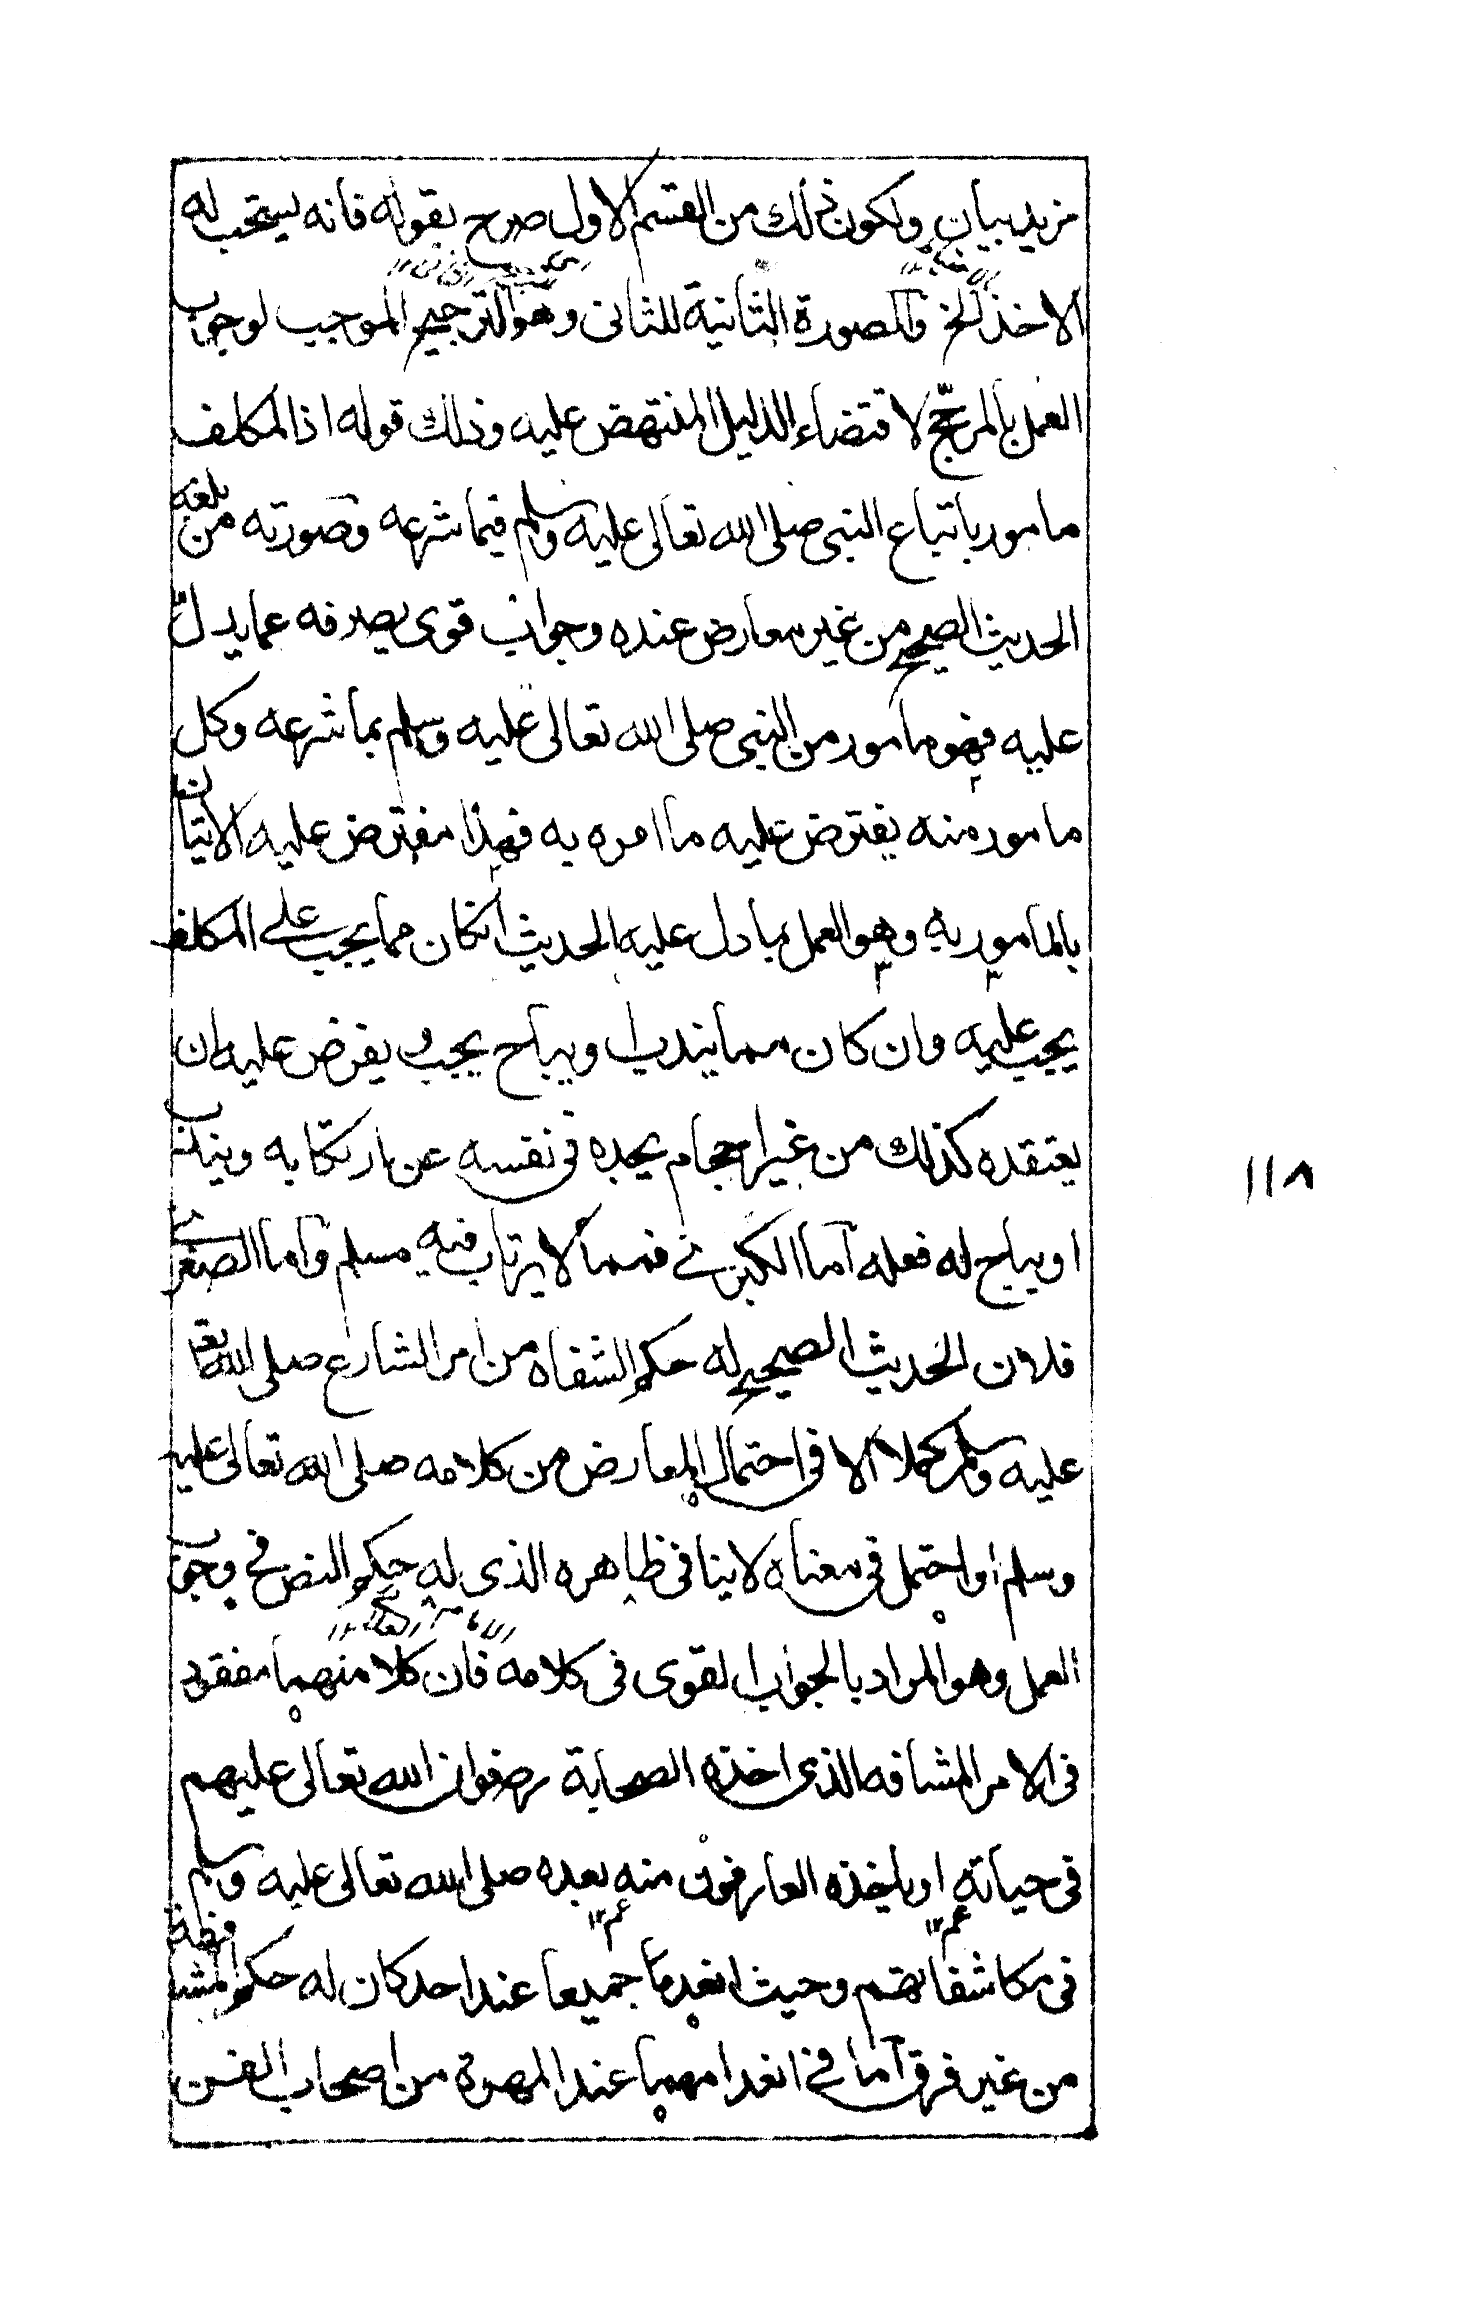 مزيد بيان ولكون ذلك من القسم الاول صرح بقوله فانه يستحب له
الاخذ الخ والصورة الثانية للثانى وهو الترجيح الموجب لوجوب
العمل بالمرجّح لاقتضاء الدليل المنتهض عليه وذلك قوله اذ المكلف
مامور باتباع النبى صلى الله تعالى عليه وسلم فيما شرعه وصورته من بلغه
الحديث الصحيح من غير معارض عنده وجواب قوى يصرفه عما يدلّ
عليه فهو مامور من النبى صلى الله تعالى عليه وسلم بما شرعه وكل
مامور منه يفترض عليه ما امره به فهذا مفترض عليه الاتيان
بالمامور به وهو العمل بما دل عليه الحديث انكان مما يجب على المكلف
يجب عليه وان كان مما يندب او يباح يجب ويفرض عليه ان
يعتقده كذلك من غير احجام يجده فى نفسه عن ارتكابه ويندب
او يباح له فعله اما الكبرى فمما لا يرتاب فيه مسلم واما الصغرى
فلان الحديث الصحيح له حكم الشفاه من امر الشارع صلى الله تعالى
عليه وسلم كملا الا فى احتمال المعارض من كلامه صلى الله تعالى عليه
وسلم او احتمل فى معناه لا ينافى ظاهره الذى له حكم النص فى وجوب
العمل وهو المراد بالجواب القوى فى كلامه فان كلا منهما مفقود
فى الامر المشافه الذى اخذه الصحابة رضوان الله تعالى عليهم
فى حياته او ياخذه العارفون منه بعده صلى الله تعالى عليه وسلم
فى مكاشفاتهم وحيث انعدما جميعا عند احد كان له حكم المشافهة
من غير فرق اما فى انعدامهما عند المهرة من اصحاب الفن
١١٨